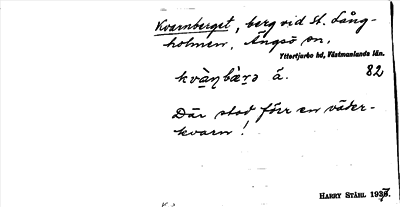 Kvarnberget, berg vid St. Lång-
holmen, Ängsö sn,
Yttertjurbo hd, Västmanlands län.
82
kvà̱ṇbæ̀ṟə á.
Där stod förr en väder-
kvarn!
HARRY STÅHL 1937.